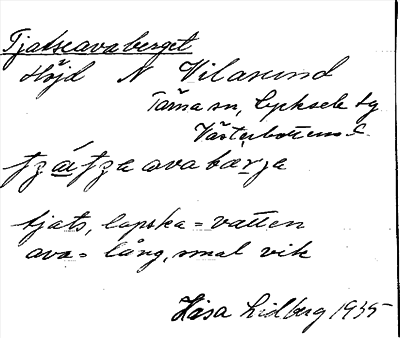 Tjatseavaberget
Höjd N Vilasund
Tärna sn, Lycksele lg
Västerbottens l.
tjats, lapska = vatten
ava = lång, smal vik
Lidberg 1935